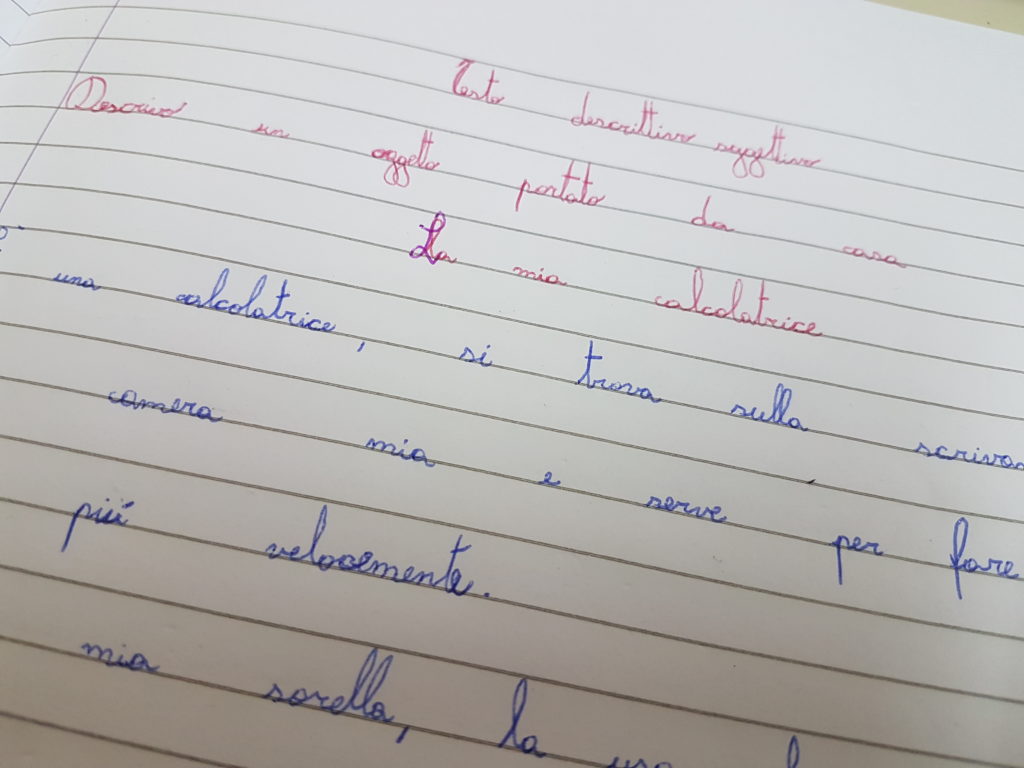 Testo descrittivo soggettivo
Descrivo un oggetto portato da casa
La mia calcolatrice
una calcolatrice, si trova sulla scrivan
camera mia e serve per fare
più velocemente.
mia sorella, la usa